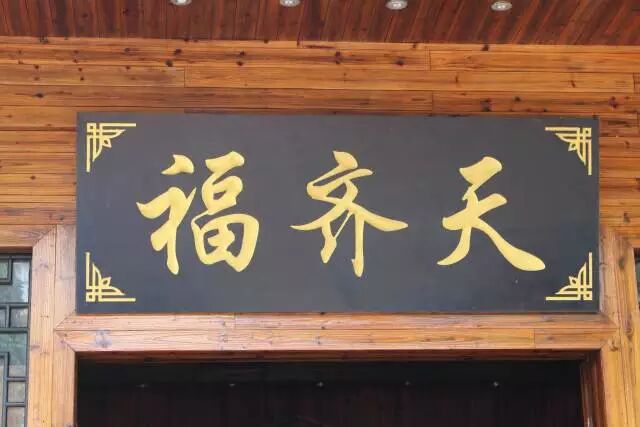 福齐天